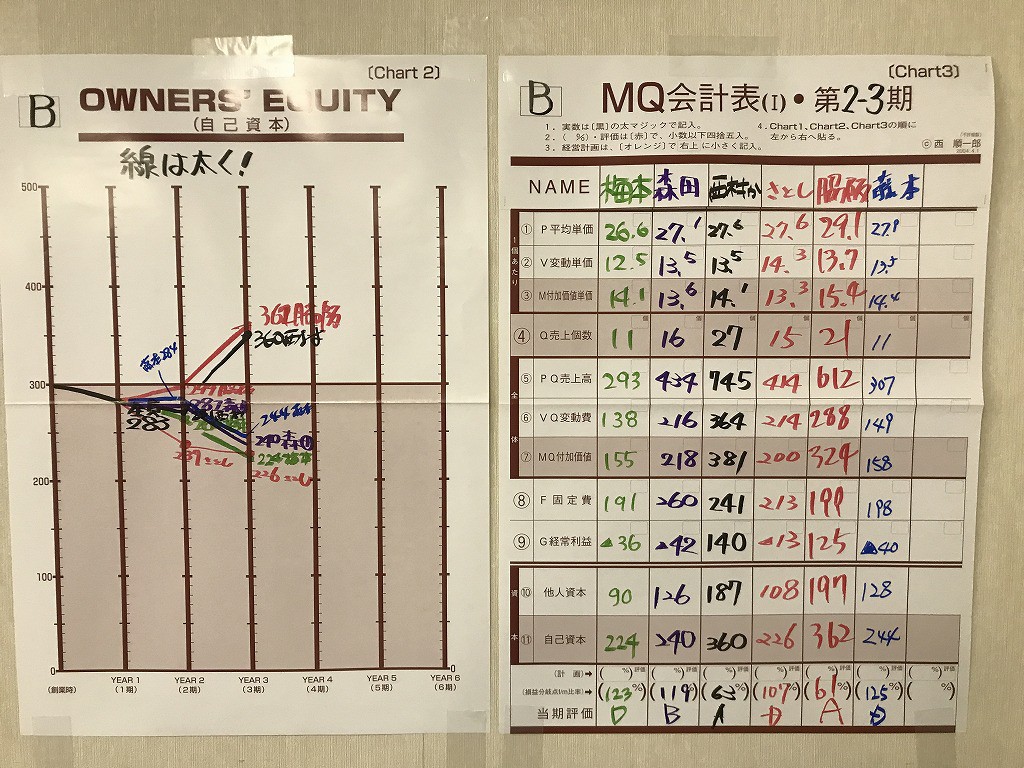 (Chart 2)
B
OWNERS' EQUITY
(自己資本)
線は太く!
500
400
300
200
100
0
0
362 脇阪
360 西村
284
283
237 さとし
244
240 森田
224 梅本
226 さとし
(創業時)
YEAR 1
(1期)
YEAR 2
(2期)
YEAR 3
(3期)
YEAR 4
(4期)
YEAR 5
(5期)
YEAR 6
(6期)
(Chart3)
B
MQ会計表(I)・第2-3期
1. 実数は〔黒〕の太マジックで記入。
2. ( %)・評価は〔赤〕で、小数以下四捨五入。
3. 経営計画は、〔オレンジ〕で右上に小さく記入。
4. Chart1、Chart2、Chart3の順に
左から右へ貼る。
©西 順一郎
2004.4.1
NAME 梅本 森田 西村 さとし 脇阪 藤本
1個あたり
① P平均単価 26.6 27.1 27.6 27.6 29.1 27.9
② V変動単価 12.5 13.5 13.5 14.3 13.7 13.5
③ M付加価値単価 14.1 13.6 14.1 13.3 15.4 14.4
④ Q売上個数 11 16 27 15 21 11
全体
⑤ PQ売上高 293 434 745 414 612 307
⑥ VQ変動費 138 216 364 214 288 149
⑦ MQ付加価値 155 218 381 200 324 158
⑧ F固定費 191 260 241 213 199 198
⑨ G経常利益 ▲36 ▲42 140 ▲13 125 ▲40
資本
⑩ 他人資本 90 126 187 108 197 128
⑪ 自己資本 224 240 360 226 362 244
(計 画)→ %) 評価 %) 評価 %) 評価 %) 評価 %) 評価 %) 評価 %) 評価
(損益分岐点f/m比率)→ (123%) (119%) (63%) (107%) (61%) (125%) ( %)
当期評価 D B A D A D